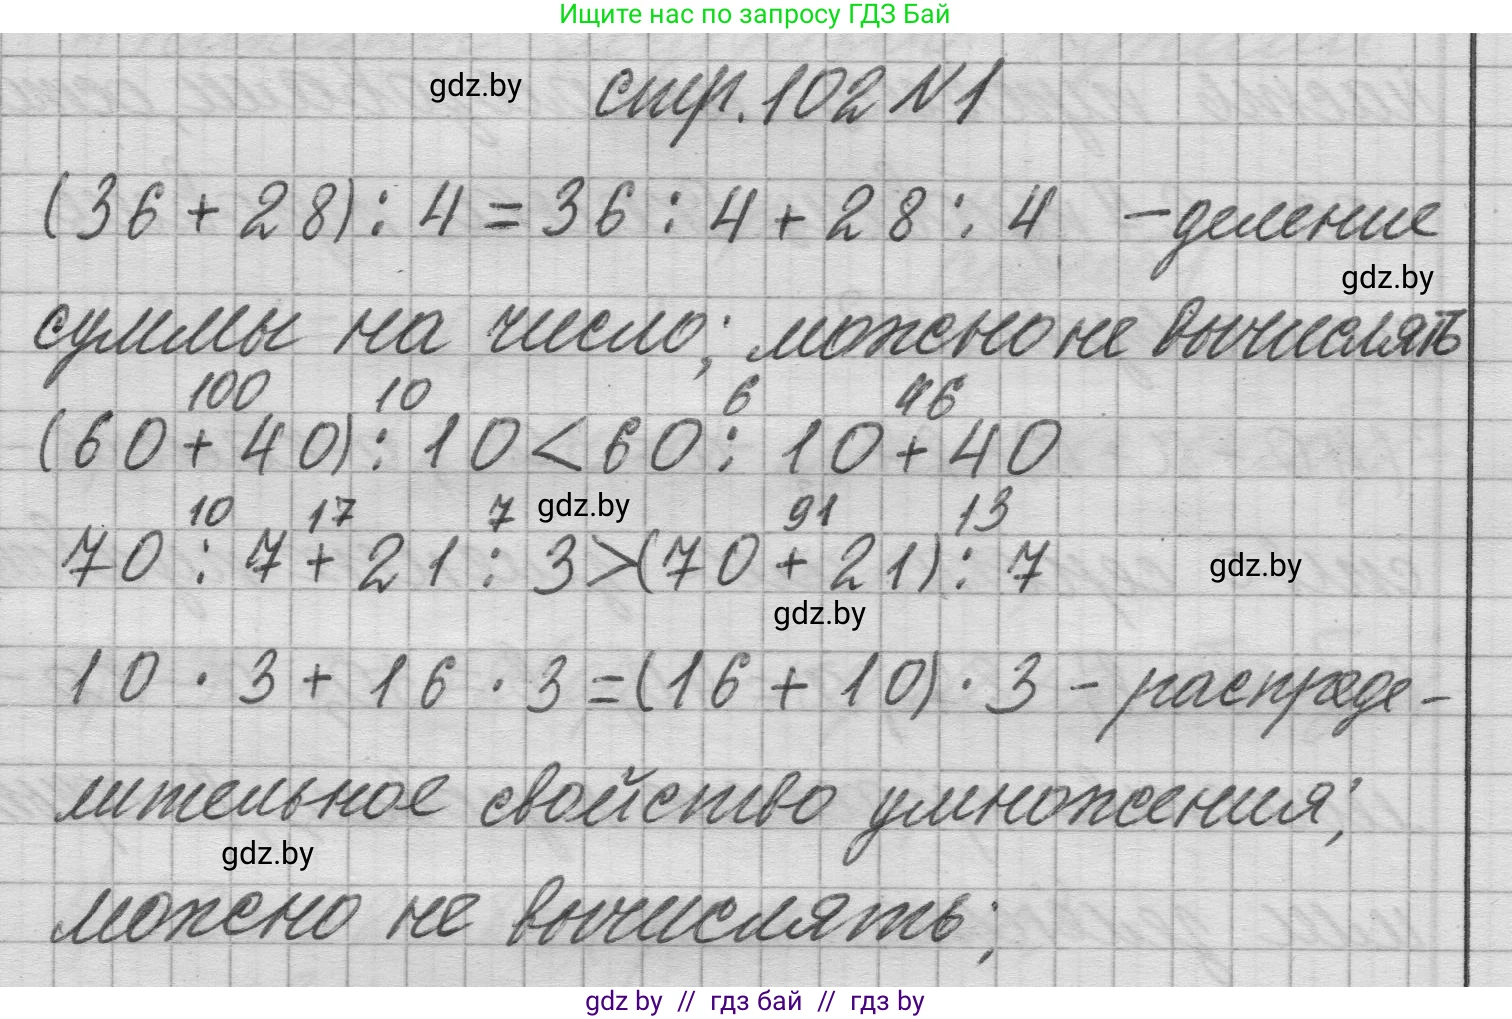 Ищите нас по запросу ГДЗ Бай
gdz.by
стр. 102 №1
(36 + 28) : 4 = 36 : 4 + 28 : 4 – деление
gdz.by
суммы на число; можно не вычислять
100 10 6 46
(60 + 40) : 10 < 60 : 10 + 40
10 17 7 gdz.by 91 13
70 : 7 + 21 : 3 > (70 + 21) : 7
gdz.by
gdz.by
10 · 3 + 16 · 3 = (16 + 10) · 3 – распреде-
лительное свойство умножения;
gdz.by
можно не вычислять;
gdz by // гдз бай // гдз by